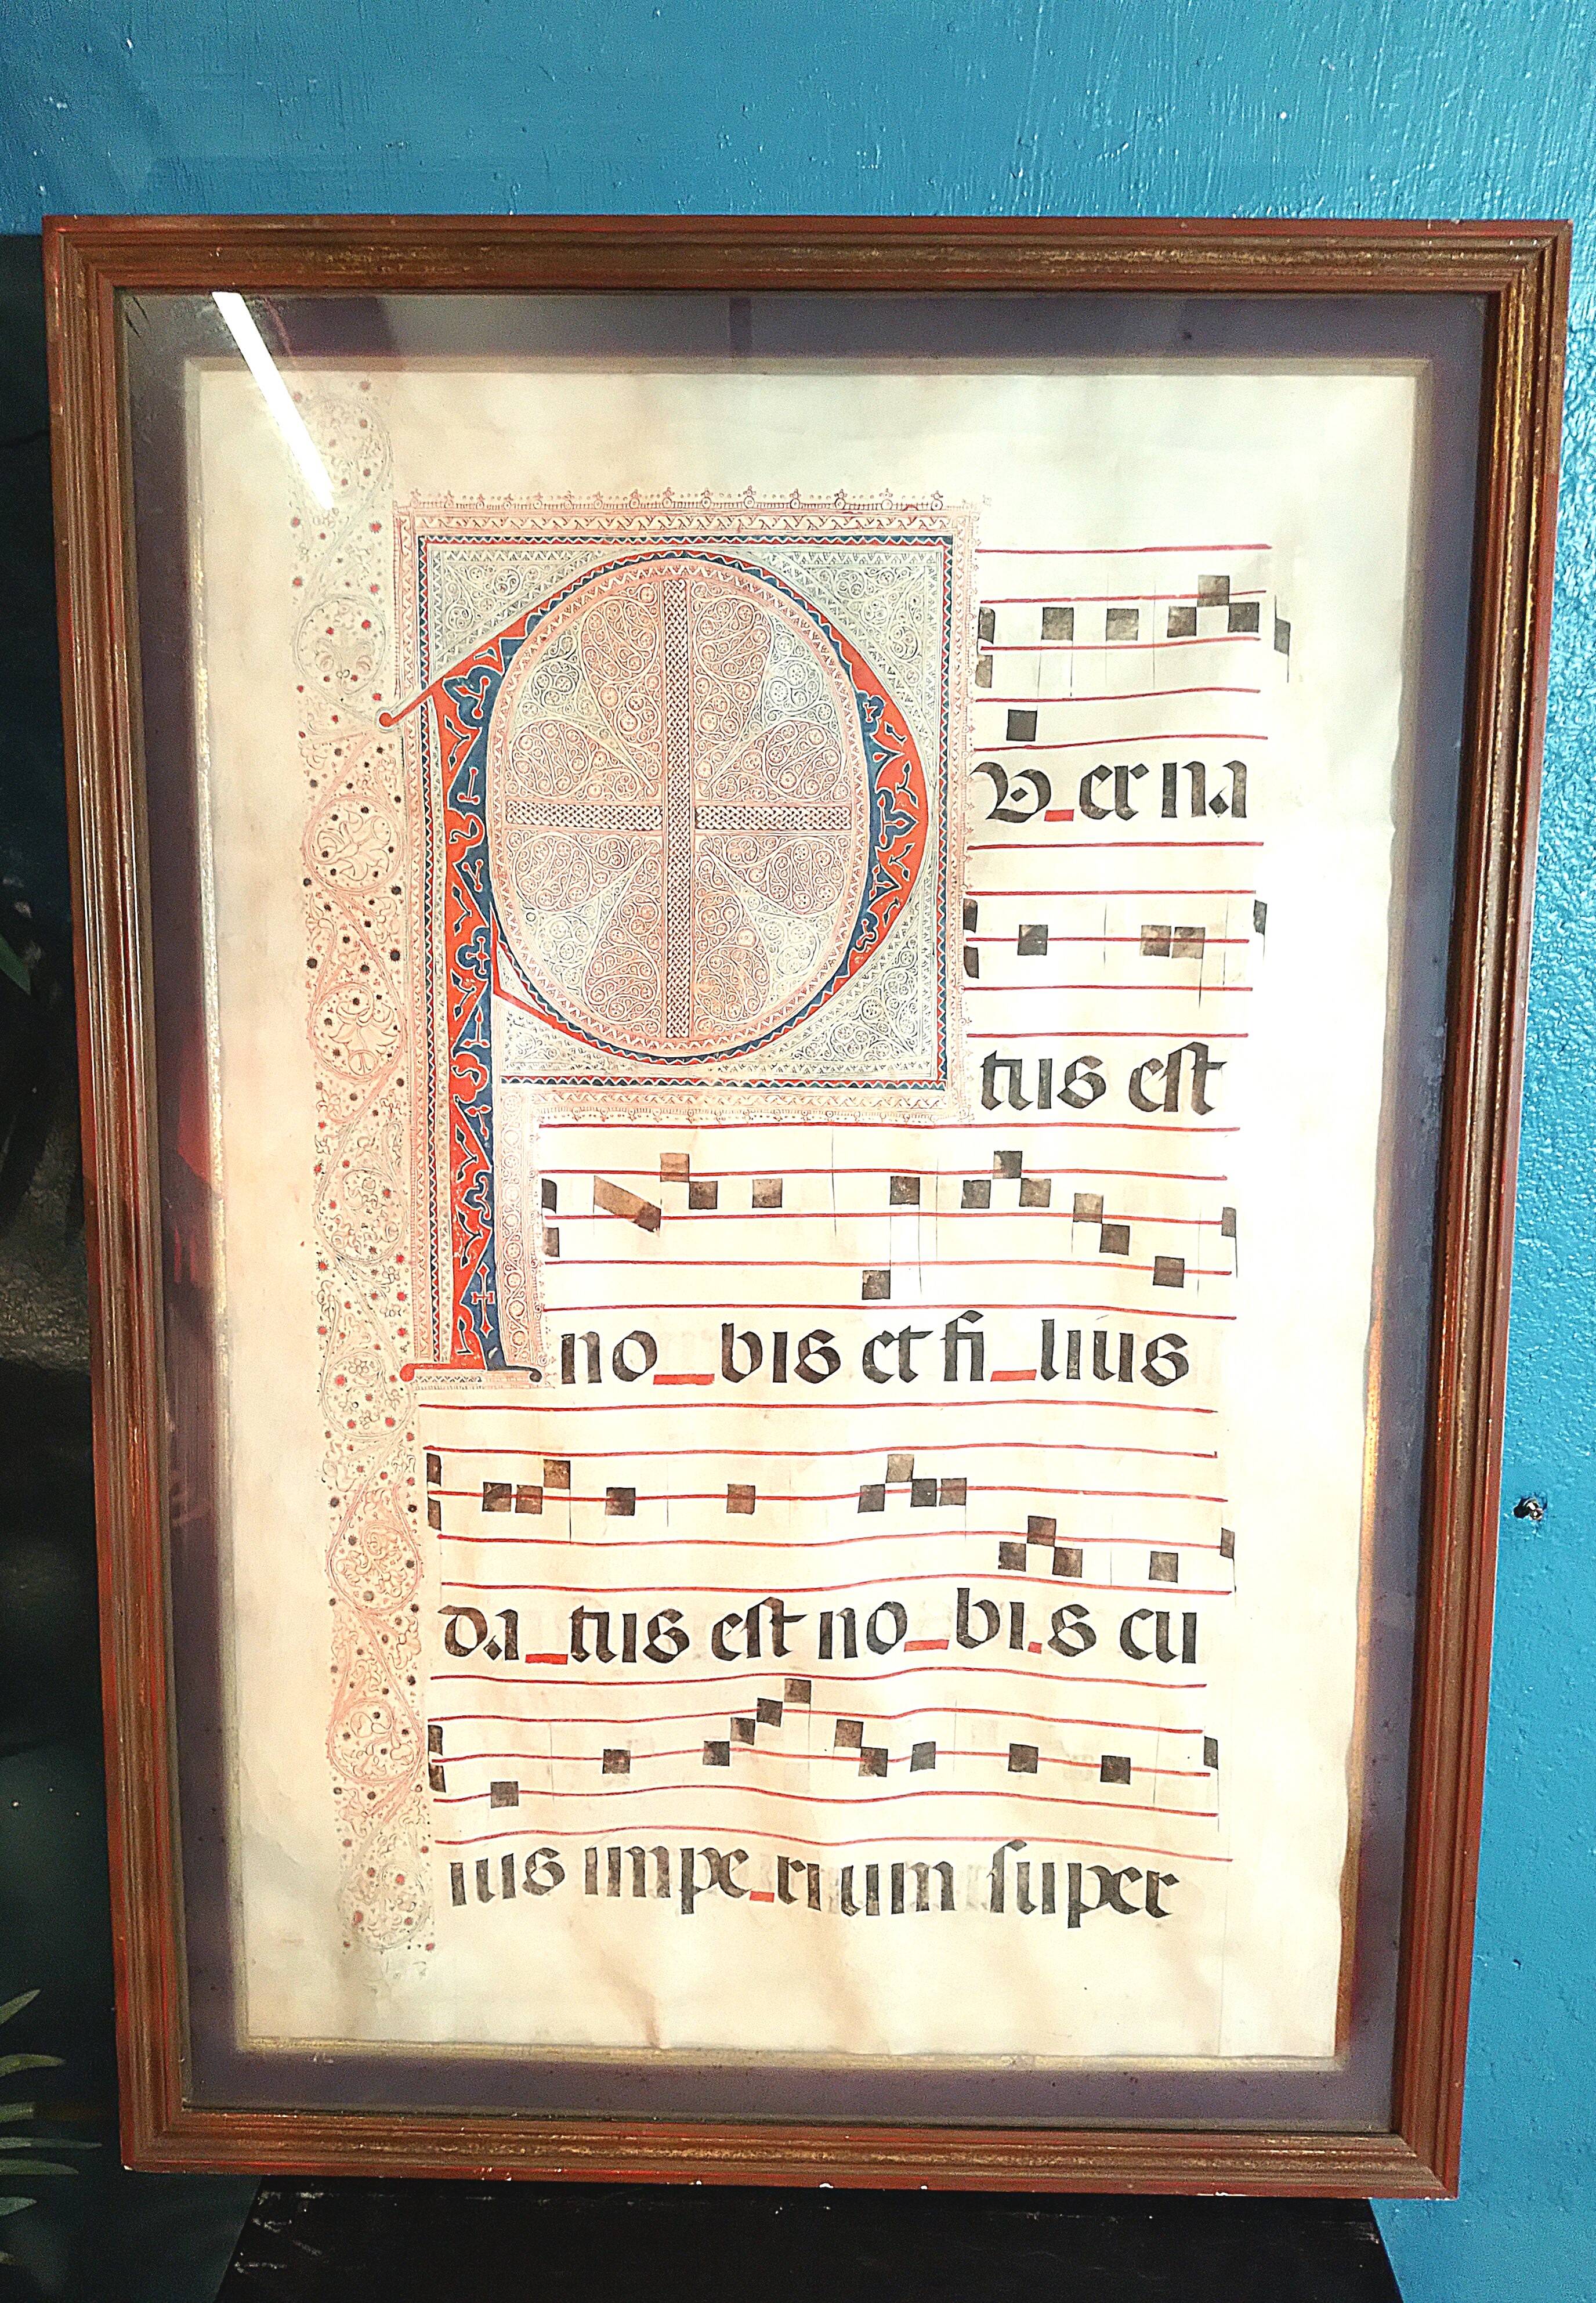 P V_er na
tus est
no_bis et fi_lius
da_tus est no_bi.s cu
ius impe_rium super